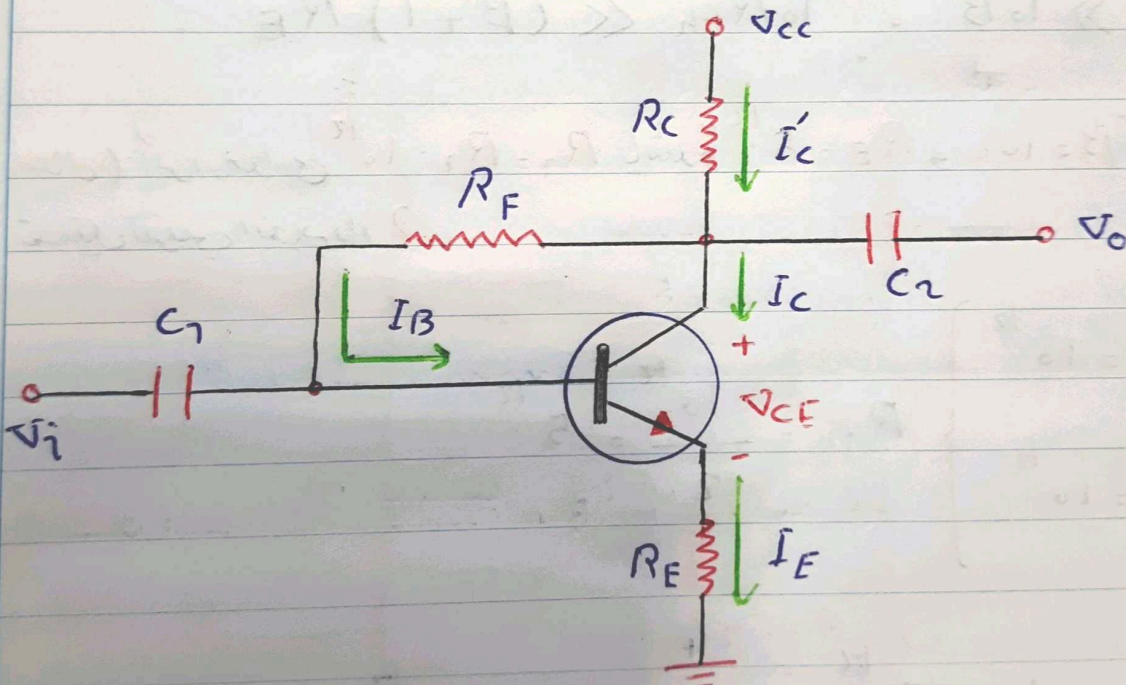 VCC
RC
I'C
RF
Vo
C2
IC
C1
IB
+
VCE
-
Vi
RE
IE